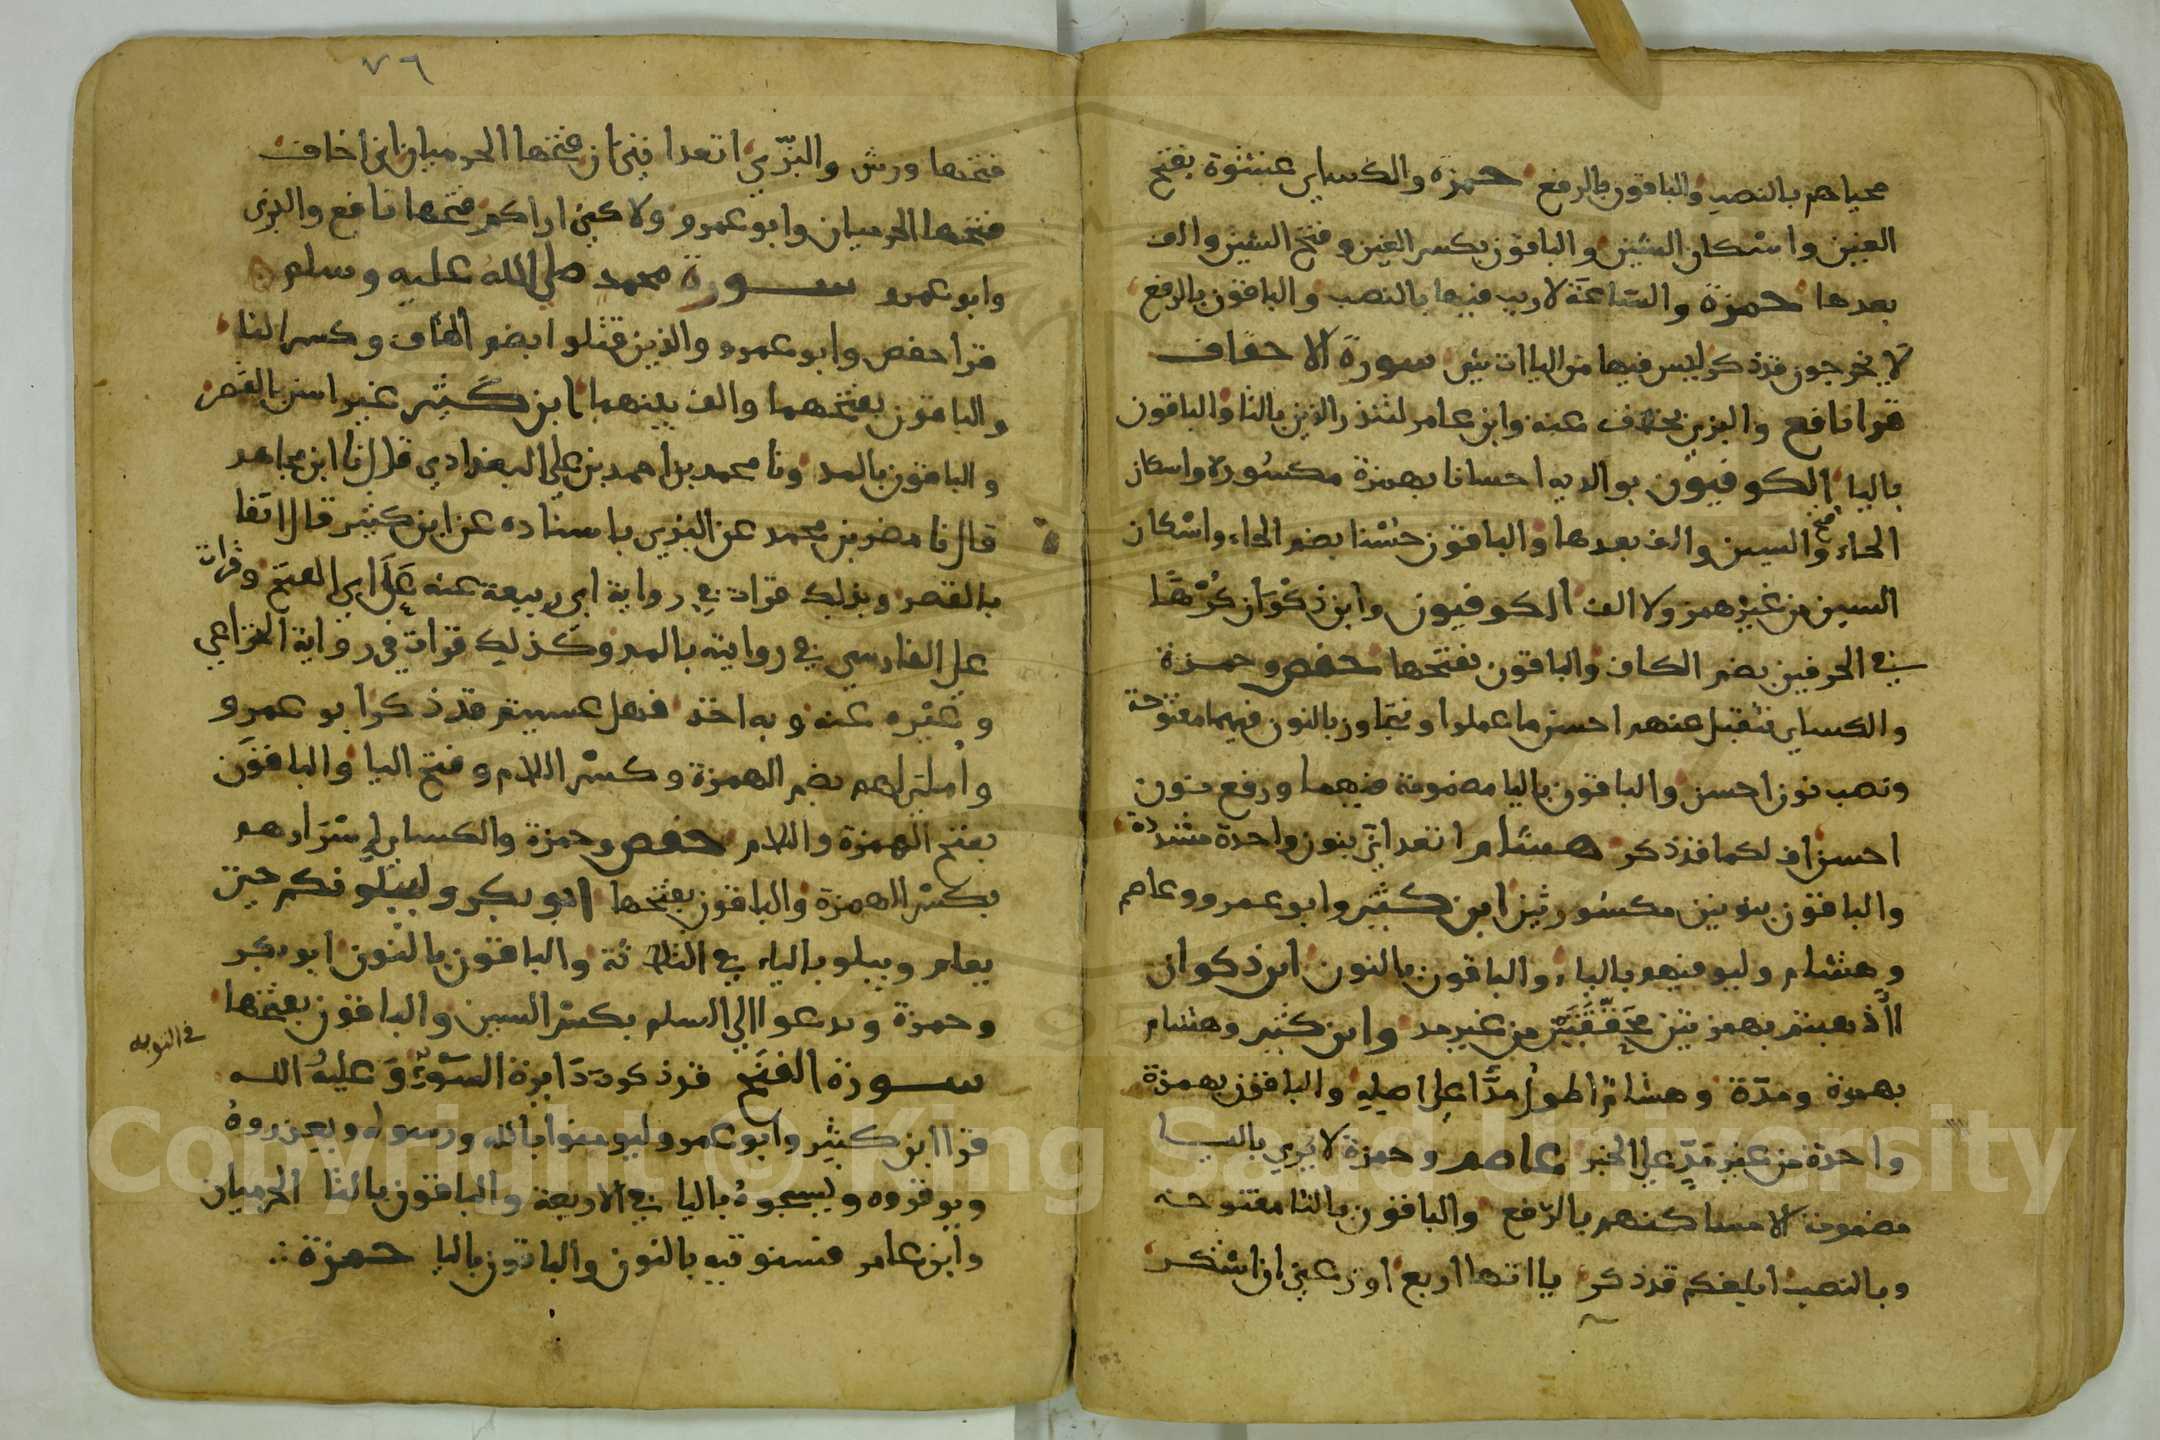 محياهم بالنصب والباقون بالرفع حمزة والكساي غشوة بفتح
الغين واسكان الشين والباقون بكسر الغين وفتح الشين والف
بعدها حمزة والساعة لا ريب فيها بالنصب والباقون بالرفع
لا يخرجون قد ذكر ليس فيها من الياات شي سورة الاحقاف
قرا نافع والبزي بخلاف عنه وابن عامر لتنذر الذين بالتا والباقون
باليا الكوفيون بوالديه احسانا بهمزة مكسورة واسكان
الحاء وفتح السين والف بعدها والباقون حسنا بضم الحاء واسكان
السين من غير همز ولا الف الكوفيون وابن ذكوان كرها
في الحرفين بضم الكاف والباقون بفتحها حفص وحمزة
والكساي نتقبل عنهم احسن ما عملوا ونتجاوز بالنون فيهما مفتوحة
ونصب نون احسن والباقون باليا مضمومة فيهما ورفع نون
احسن اف لكما قد ذكر هشام اتعداني بنون واحدة مشددة
والباقون بنونين مكسورتين ابن كثير وابو عمرو وعاصم
وهشام وليوفيهم بالياء والباقون بالنون ابن ذكوان
أأذهبتم بهمزتين محققتين من غير مد وابن كثير وهشام
بهمزة ومدة وهشام اطول مدا على اصله والباقون بهمزة
واحدة من غير مد على الخبر عاصم وحمزة لا يري باليا
مضمومة الا مساكنهم بالرفع والباقون بالتا مفتوحة
وبالنصب ابلغكم قد ذكر يااتها اربع اوزعني ان اشكر
٧٦
فتحها ورش والبزي اتعدانني ان فتحها الحرميان اني اخاف
فتحها الحرميان وابو عمرو ولاكني اراكم فتحها نافع والبزي
وابو عمرو سورة محمد صلى الله عليه وسلم
قرا حفص وابو عمرو والذين قتلوا بضم القاف وكسر التا
والباقون بفتحهما والف بينهما ابن كثير غير اسن بالقصر
والباقون بالمد ونا محمد بن احمد بن علي البغدادي قال نا ابن مجاهد
قال نا مضر بن محمد عن البزي باسناده عن ابن كثير قال انفا
بالقصر وبذلك قرات في رواية ابي ربيعة عنه على ابي الفتح وقرات
على الفارسي في روايته بالمد وكذلك قرات في رواية الخزاعي
وغيره عنه وبه اخذ فهل عسيتم قد ذكر ابو عمرو
وأملي لهم بضم الهمزة وكسر اللام وفتح اليا والباقون
بفتح الهمزة واللام حفص وحمزة والكساي إسرارهم
بكسر الهمزة والباقون بفتحها ابو بكر وليبلونكم حتى
يعلم ويبلو بالياء في الثلاثة والباقون بالنون ابو بكر
وحمزة وتدعوا الى السلم بكسر السين والباقون بفتحها
سورة الفتح قد ذكرت دايرة السوء وعليه الله
في التوبه
قرا ابن كثير وابو عمرو ليومنوا بالله ورسوله ويعزروه
ويوقروه ويسبحوه باليا في الاربعة والباقون بالتا الحرميان
وابن عامر فسنوتيه بالنون والباقون باليا حمزة
Copyright © King Saud University